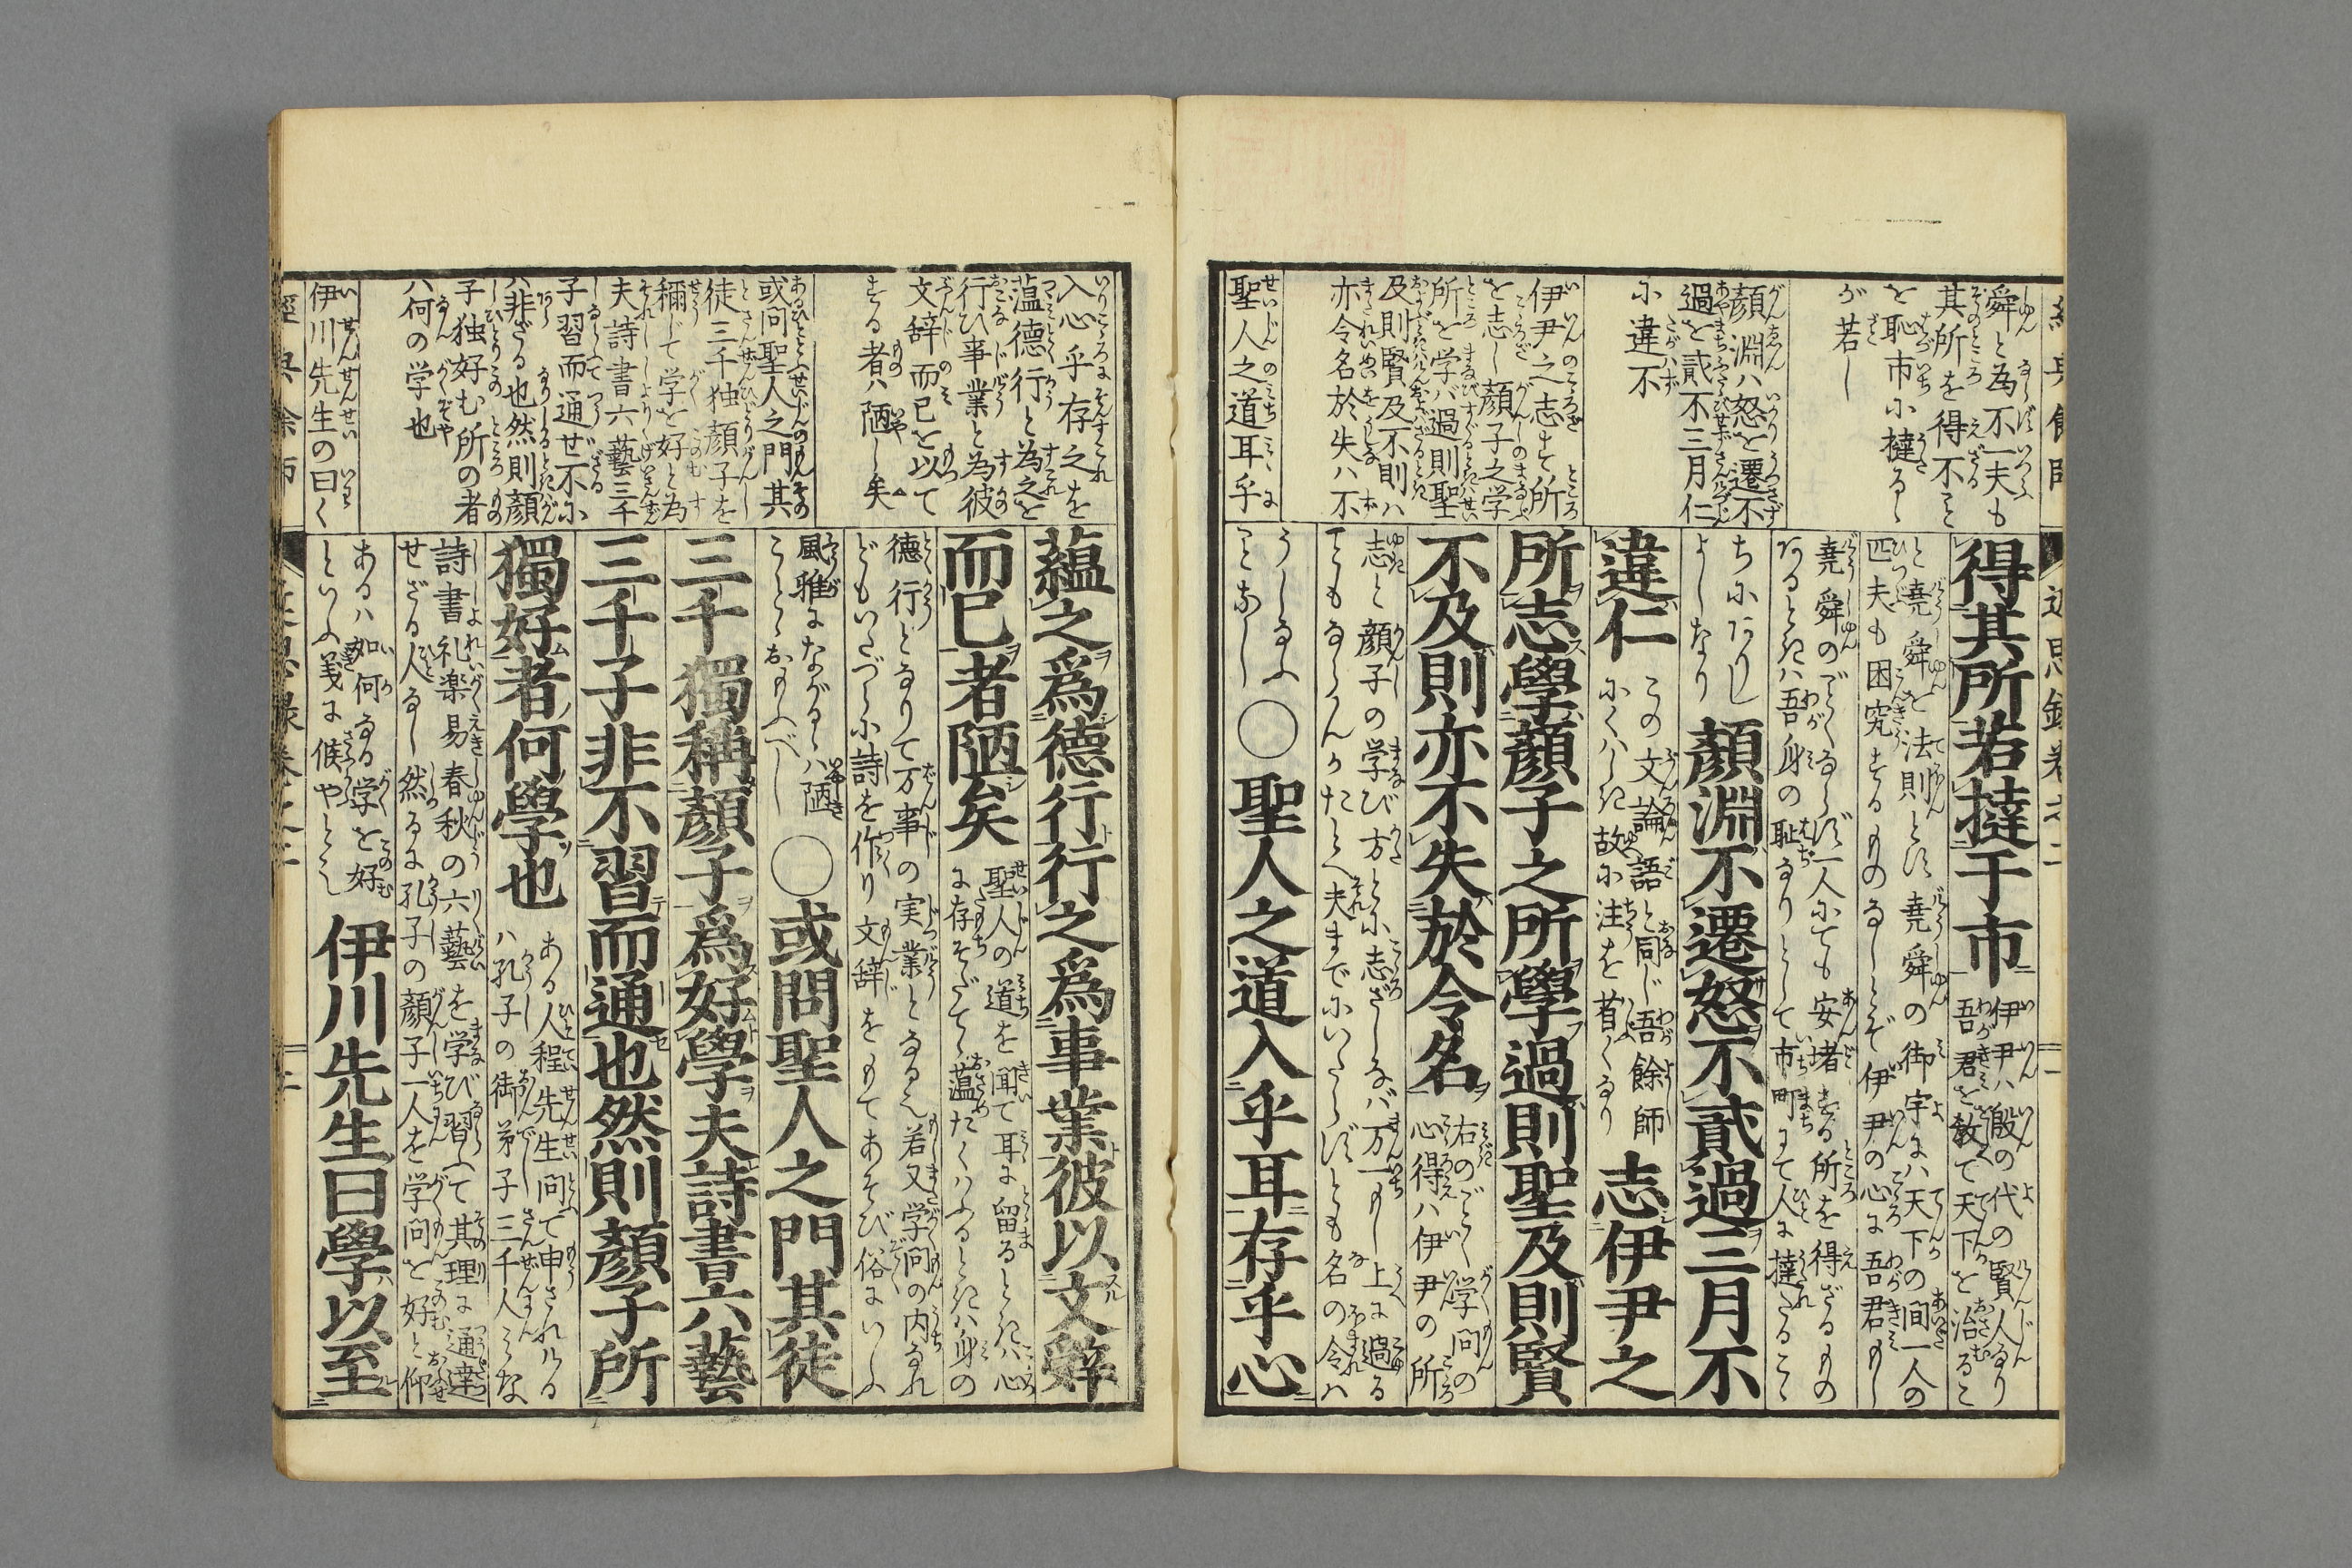 經典餘師
近思録巻之二
舜と為不一夫も
其所を得不
を恥市に撻るゝ
が若し
顔淵ハ怒を遷不
過を貳不三月仁
に違不
伊尹之志す所
を志し顔子之学
所を学バ過則聖
及則賢及不則ハ
亦令名於失ハ不
聖人之道耳乎
得其所若撻于市
伊尹ハ殷の代の賢人なり
吾君を教て天下を治るに
と堯舜を法則とす堯舜の御宇にハ天下の間一人の
匹夫も困究するものなしとぞ伊尹の心に吾君もし
堯舜のごとくならず一人にても安堵する所を得ざるもの
あるときハ吾身の恥なりとして市町にて人に撻たるゝこゝ
ちにありし
よしなり
顏淵不遷怒不貳過三月不
違仁
この文論語と同じ吾餘師
にくハしき故に注を省くなり
志伊尹之
所志學顏子之所學過則聖及則賢
不及則亦不失於令名
右のごとく学問の
心得ハ伊尹の所
志と顔子の学び方とに志ざしなバ万一もし上に過る
こともならんかたとへ夫までにいたらずとも名の令ハ
うしなふ
ことなし
○聖人之道入乎耳存乎心
入心乎存之を
蕰徳行と為之を
行ひ事業と為彼
文辞而已を以て
する者ハ陋し矣
或問聖人之門其
徒三千独顔子を
稱じて学を好と為
夫詩書六藝三千
子習而通ぜ不に
非ざる也然則顔
子独好む所の者
ハ何の学也
伊川先生の曰く
蘊之爲德行行之爲事業彼以文辭
而已者陋矣
聖人の道を聞て耳に留るときハ心
に存そだて蕰たくハふるときハ身の
徳行となりて万事の実業となる也若又学問の内なれ
どもいたづらに詩を作り文辞をもてあそび俗にいふ
風雅にながるゝハ陋き
ことゝおもふべし
○或問聖人之門其徒
三千獨稱顏子爲好學夫詩書六藝
三千子非不習而通也然則顏子所
獨好者何學也
ある人程先生問て申されけるハ
孔子の御弟子三千人みな
詩書礼楽易春秋の六藝を学び習ふて其理に通達
せざる人なし然るに孔子の顔子一人を学問を好と仰
あるハ如何なる学を好
といふ義に候やとなり
伊川先生曰學以至
經典餘師
近思録巻之二
二